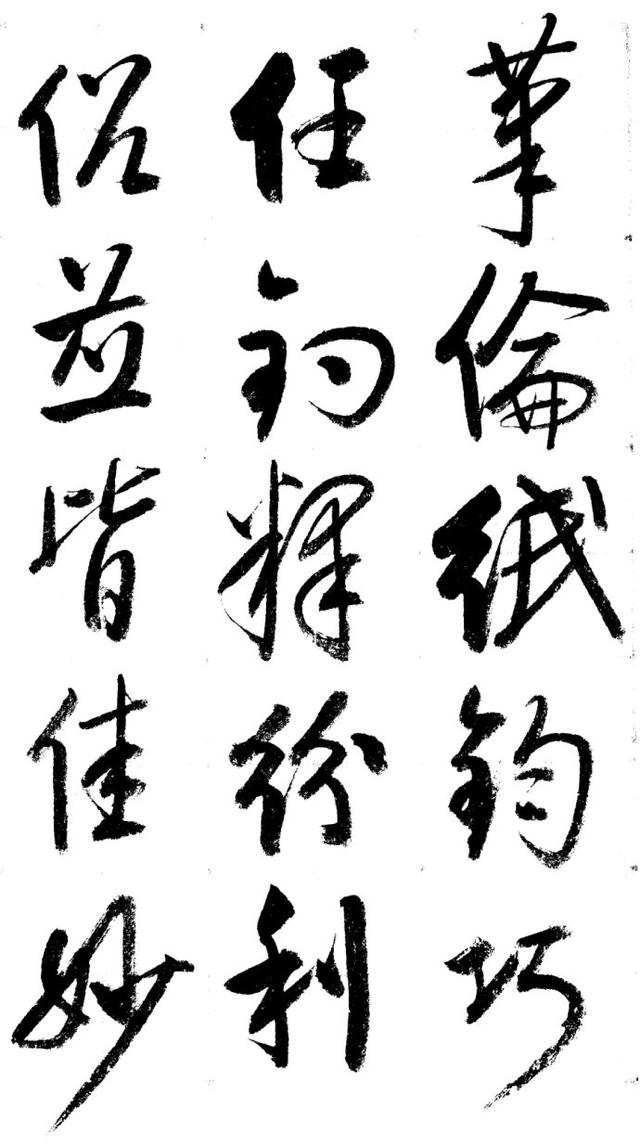 筆倫紙鈞巧
任釣釋紛利
俗並皆佳妙